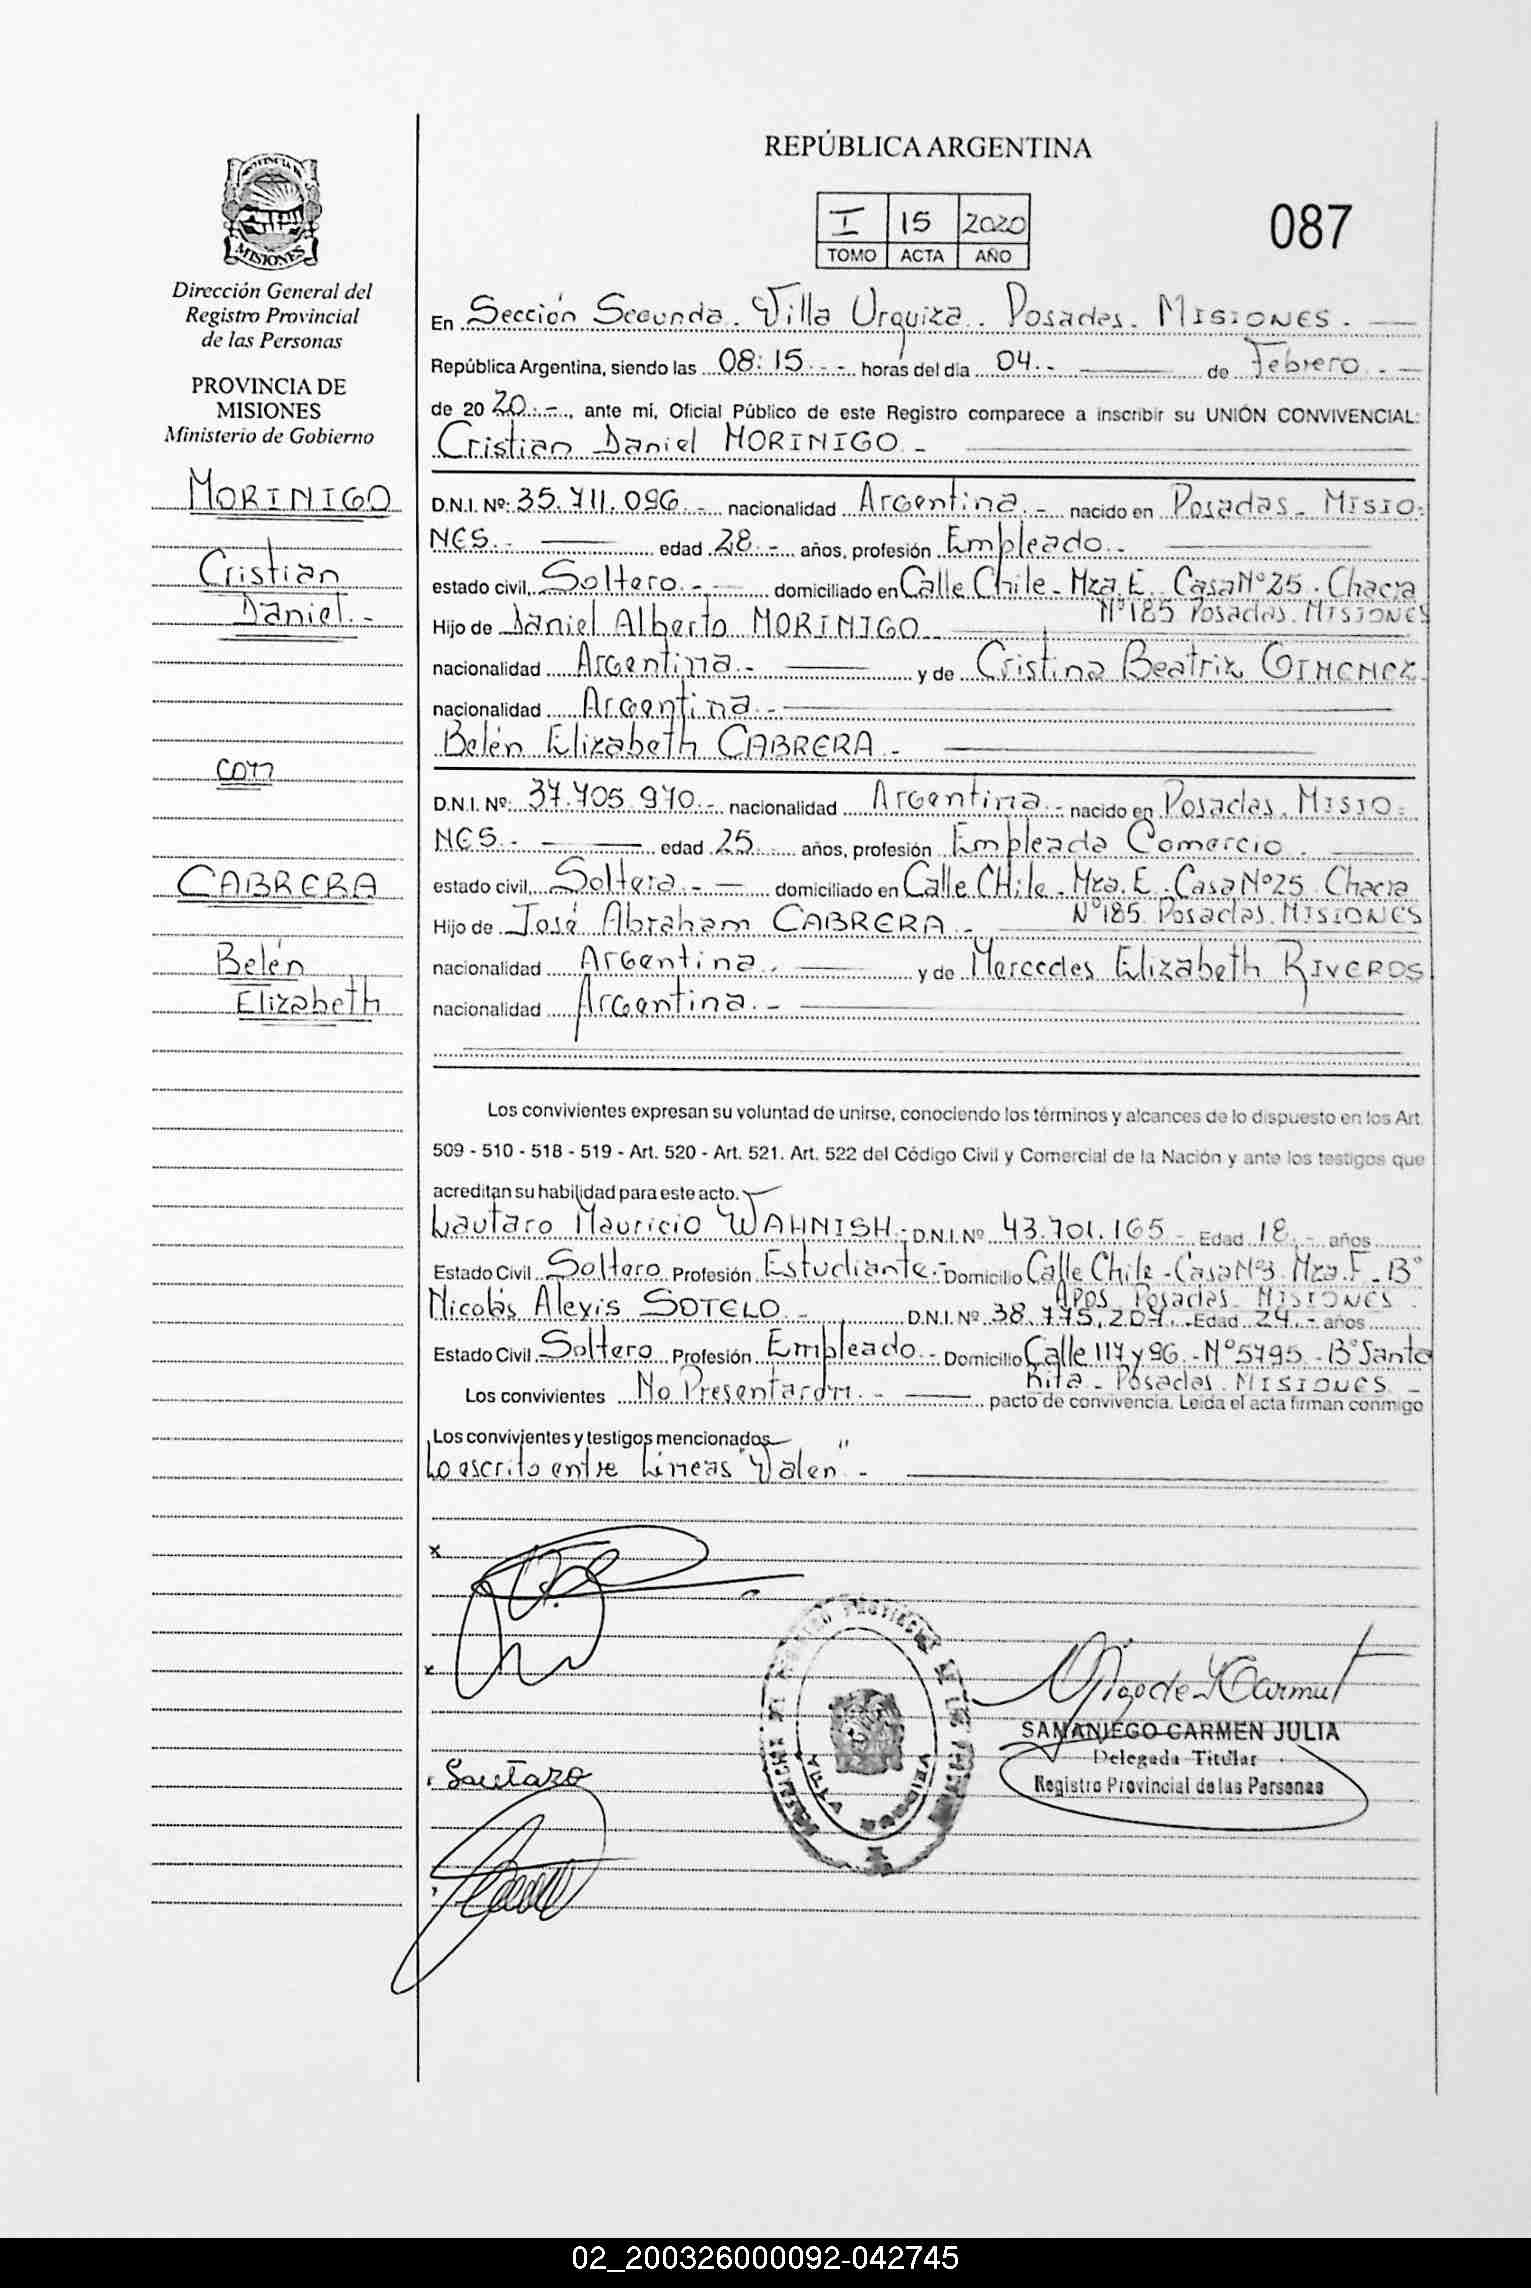 REPÚBLICA ARGENTINA
I 15 2020
TOMO ACTA AÑO
087
PROVINCIA DE
MISIONES
Dirección General del
Registro Provincial
de las Personas
PROVINCIA DE
MISIONES
Ministerio de Gobierno
MORINIGO
Cristian
Daniel.-
con
CABRERA
Belén
Elizabeth
En Sección Segunda. Villa Urquiza. Posadas. MISIONES.
República Argentina, siendo las 08:15.-- horas del día 04.- de Febrero.--
de 20 20.-, ante mí, Oficial Público de este Registro comparece a inscribir su UNIÓN CONVIVENCIAL:
Cristian Daniel MORINIGO.-
D.N.I. Nº: 35.711.096.- nacionalidad Argentina.- nacido en Posadas. MISIO-
NES.- edad 28.- años, profesión Empleado.-
estado civil, Soltero.- domiciliado en Calle Chile - Mza. E. Casa Nº25. Chacra
Nº185 Posadas. MISIONES
Hijo de Daniel Alberto MORINIGO
nacionalidad Argentina.- y de Cristina Beatriz GIMENEZ.
nacionalidad Argentina.-
Belén Elizabeth CABRERA.-
D.N.I. Nº: 37.705.970.- nacionalidad Argentina.- nacido en Posadas. MISIO-
NES.- edad 25.- años, profesión Empleada Comercio.
estado civil, Soltera.- domiciliado en Calle CHile - Mza. E. Casa Nº25. Chacra
Nº185. Posadas. MISIONES
Hijo de José Abraham CABRERA.-
nacionalidad Argentina. y de Mercedes Elizabeth RIVEROS
nacionalidad Argentina.-
Los convivientes expresan su voluntad de unirse, conociendo los términos y alcances de lo dispuesto en los Art.
509 - 510 - 518 - 519 - Art. 520 - Art. 521. Art. 522 del Código Civil y Comercial de la Nación y ante los testigos que
acreditan su habilidad para este acto.
Lautaro Mauricio WAHNISH.- D.N.I. Nº 43.701.165 - Edad 18.- años
Estado Civil Soltero Profesión Estudiante.- Domicilio Calle Chile - Casa Nº3 Mza. F - Bº
APOS. Posadas. MISIONES.
Nicolás Alexis SOTELO.- D.N.I. Nº 38.775.207.- Edad 24.- años
Estado Civil Soltero Profesión Empleado.- Domicilio Calle 117 y 96.- Nº5795.- Bº Santa
Rita - Posadas. MISIONES.-
Los convivientes No Presentaron.- pacto de convivencia. Leída el acta firman conmigo
Los convivientes y testigos mencionados
Lo escrito entre Líneas "Valen".-
x
x
Lautaro
SAMANIEGO CARMEN JULIA
Delegada Titular
Registro Provincial de las Personas
02_200326000092-042745